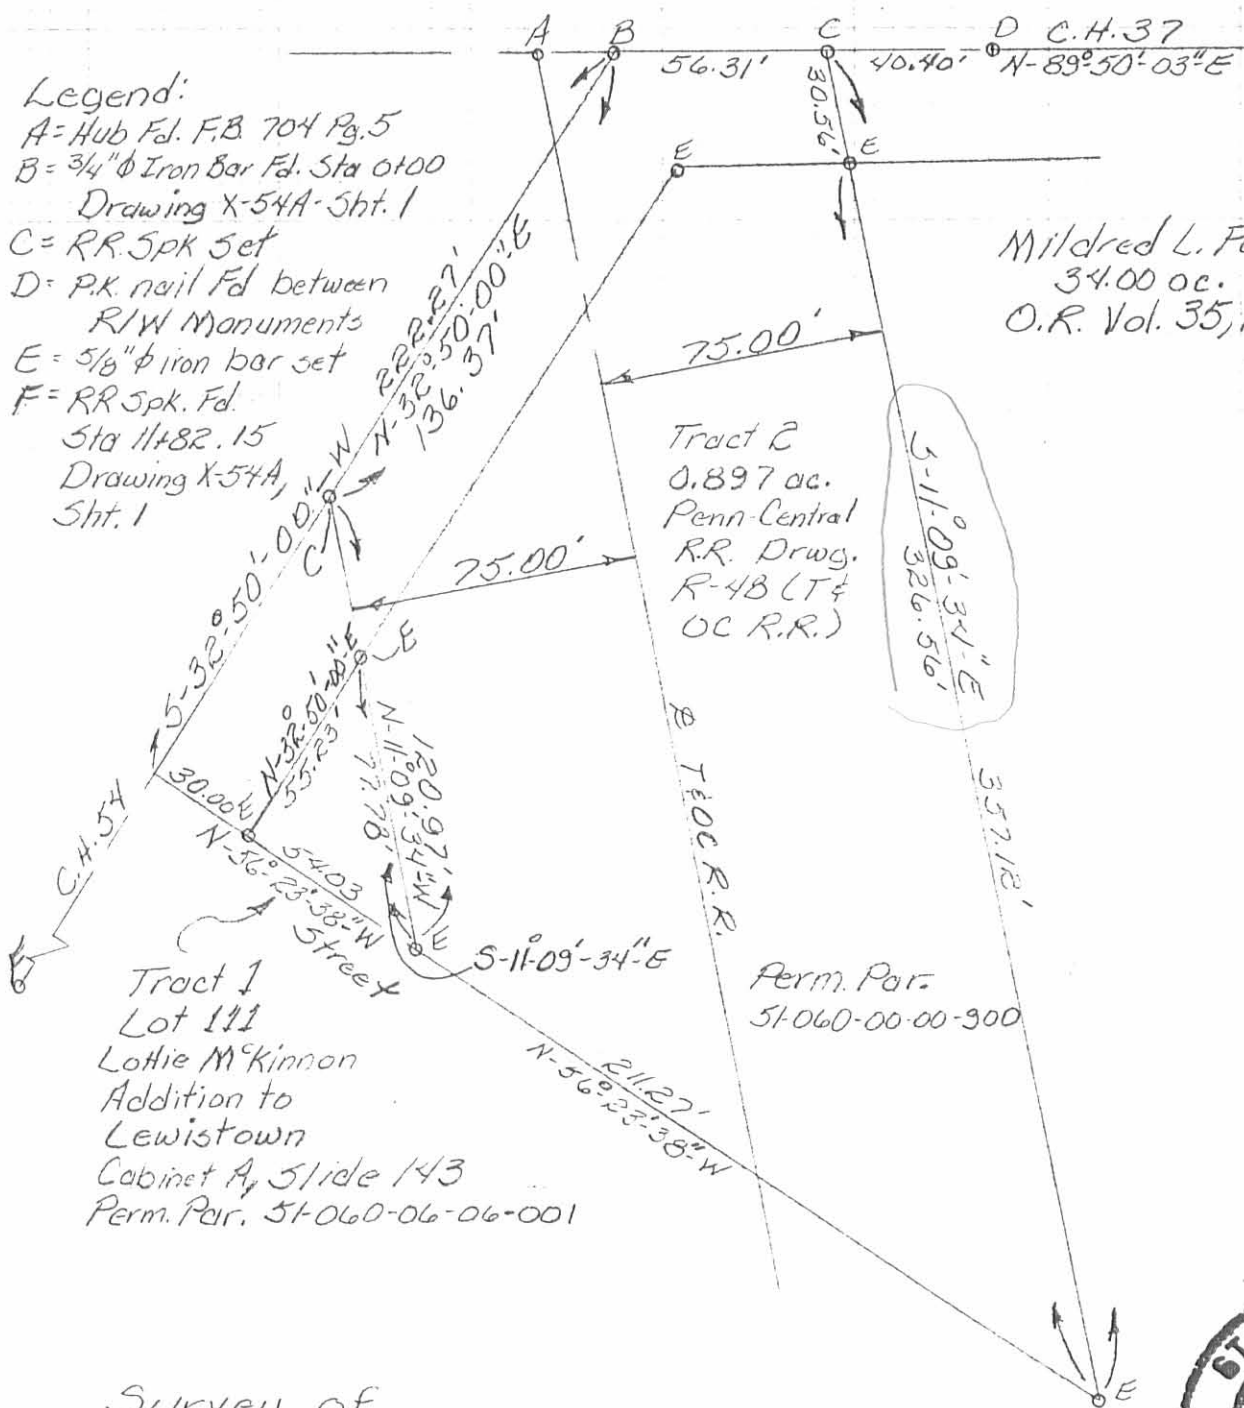 A B C D C.H.37
56.31' 40.40' N-89°-50'-03"E
30.56'
E E
Legend:
A = Hub Fd. F.B. 704 Pg.5
B = 3/4"φ Iron Bar Fd. Sta 0+00
Drawing X-54A-Sht. 1
C = RR. Spk Set
D = P.K. nail Fd between
R/W Monuments
E = 5/8"φ iron bar set
F = RR Spk. Fd.
Sta 11+82.15
Drawing X-54A,
Sht. 1
Mildred L.
34.00 ac.
O.R. Vol. 35,
222.27'
N-32°-50'-00"E
136.37'
75.00'
Tract 2
0.897 ac.
Penn-Central
R.R. Drwg.
R-48 (T&
OC R.R.)
S-11°-09'-34"-E
326.56'
C
75.00'
S-32°-50'-00"-W
E
N-32°-50'-00"-E
55.23'
120.97'
N-11°-09'-34"-W
77.78'
℄ T&OC R.R.
357.18'
30.00
E
54.03
N-56°-23'-38"-W
Street
C.H. 54
F
E
S-11°-09'-34"-E
Tract 1
Lot 111
Lottie McKinnon
Addition to
Lewistown
Cabinet A, Slide 143
Perm. Par. 51-060-06-06-001
Perm. Par.
51-060-00-00-900
211.27'
N-56°-23'-38"-W
E
Survey of